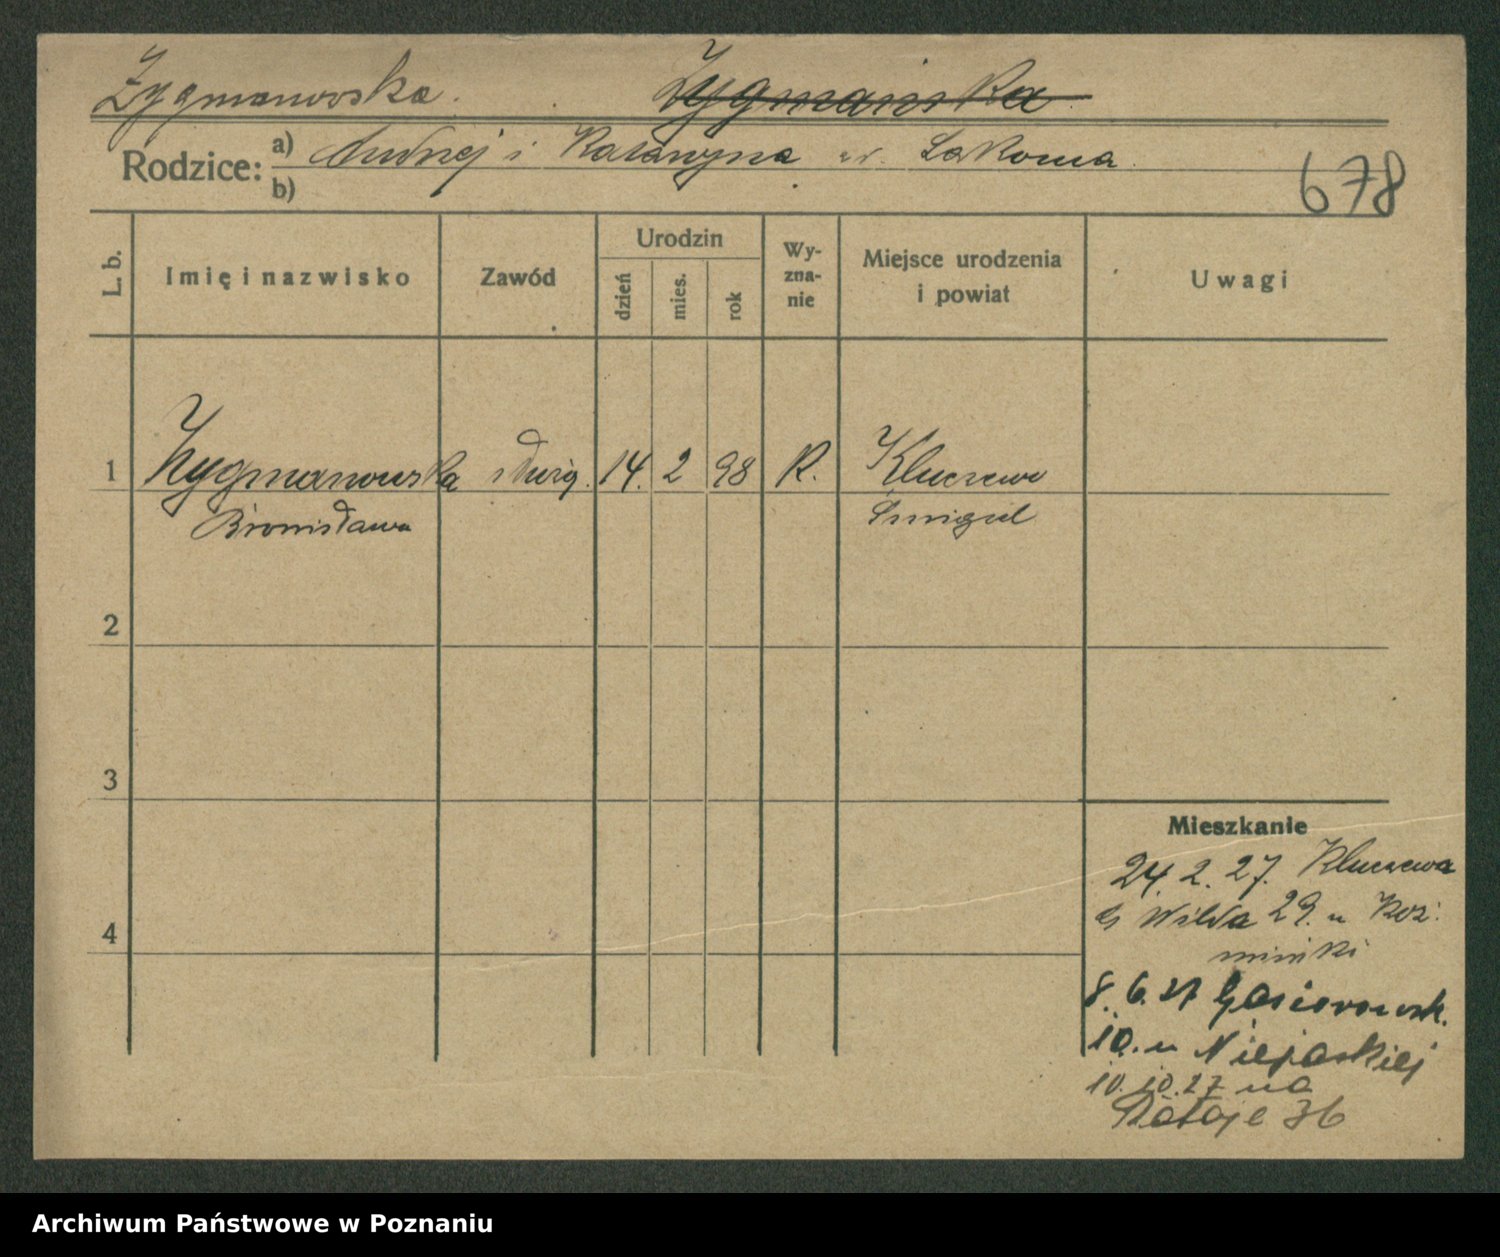 Zygmanowska. Zygmańska
Rodzice: a) Andrzej i Katarzyna ur. Łakoma.
b)
678
L. b. Imię i nazwisko Zawód Urodzin dzień mies. rok Wy-zna-nie Miejsce urodzenia i powiat Uwagi
1 Zygmanowska służą. 14. 2 98 R. Kluczewo
Bronisława Śmigiel
2
3
Mieszkanie
24. 2. 27. Kluczewa
Wilda 29. u Koź:
mińki
4
8. 6. 27 Gąsiorowsk.
10. u Niejaskiej
10. 10. 27 na
Rataje 36
Archiwum Państwowe w Poznaniu